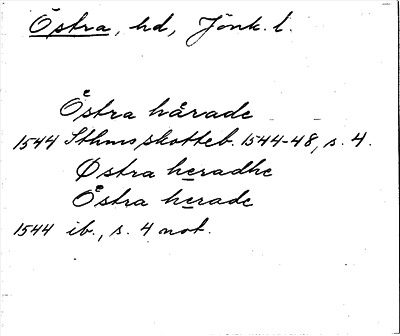 Östra, hd, Jönk. l.
Östra hårade
1544 Sthms skotteb. 1544-48, s. 4.
Østra heradhe
Östra herade
1544 ib., s. 4 not.